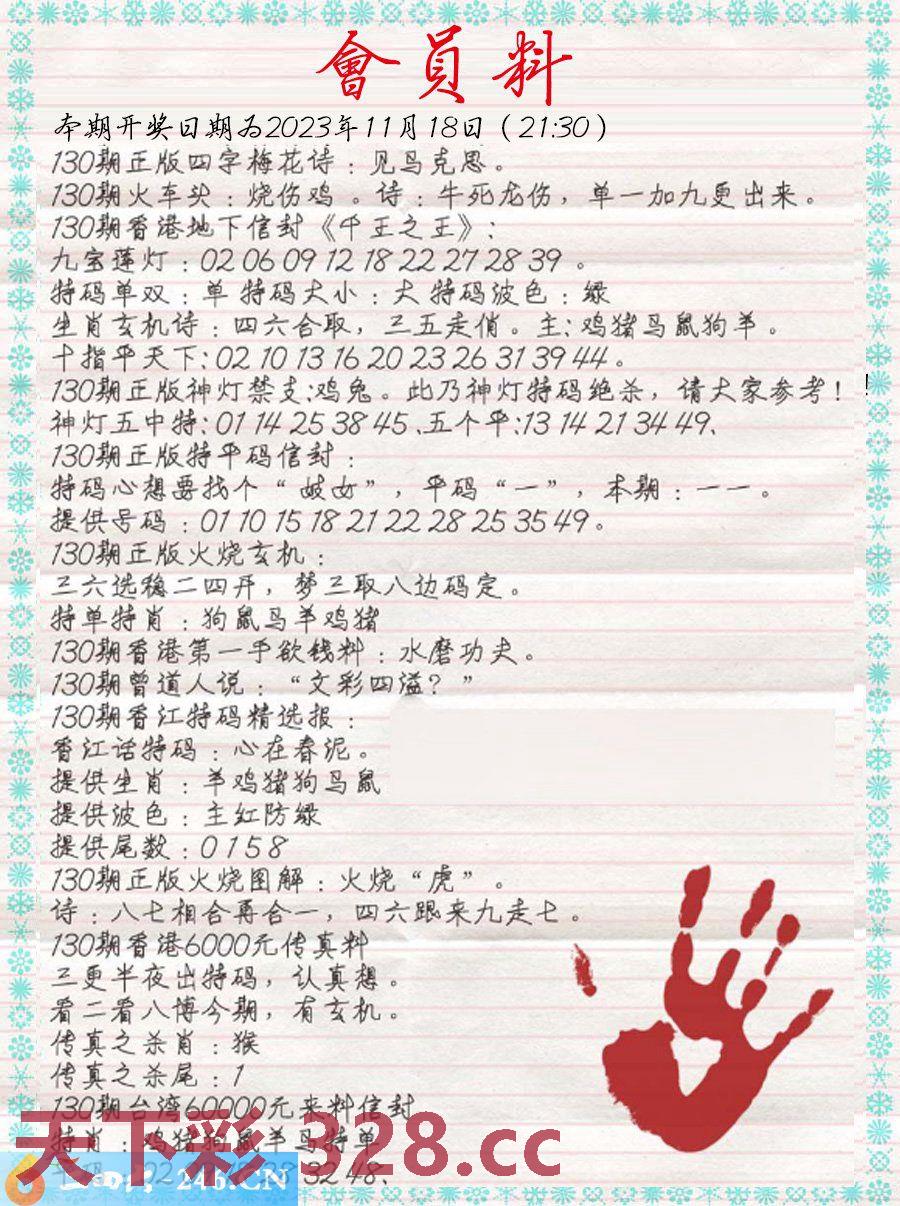 會員料
本期开奖日期为2023年11月18日（21:30）
130期正版四字梅花诗：见鸟克思。
130期火车头：烧伤鸡。诗：牛死龙伤，单一加九更出来。
130期香港地下信封《千王之王》：
九宝莲灯：02 06 09 12 18 22 27 28 39 。
特码单双：单 特码大小：大 特码波色：绿
生肖玄机诗：四六合取，三五走俏。主：鸡猪马鼠狗羊。
十指平天下：02 10 13 16 20 23 26 31 39 44 。
130期正版神灯禁支：鸡兔。此乃神灯特码绝杀，请大家参考！!
神灯五中特：01 14 25 38 45 、五个平：13 14 21 34 49、
130期正版特平码信封：
特码心想要找个“妓女”，平码“一”，本期：一一。
提供号码：01 10 15 18 21 22 28 25 35 49。
130期正版火烧玄机：
三六选稳二四开，梦三取八边码定。
特单特肖：狗鼠马羊鸡猪
130期香港第一手欲钱料：水磨功夫。
130期曾道人说：“文彩四溢？”
130期香江特码精选报：
香江话特码：心在春泥。
提供生肖：羊鸡猪狗马鼠
提供波色：主红防绿
提供尾数：0 1 5 8
130期正版火烧图解：火烧“虎”。
诗：八七相合再合一，四六跟来九走七。
130期香港6000元传真料
三更半夜出特码，认真想。
看二看八博今期，有玄机。
传真之杀肖：猴
传真之杀尾：1
130期台湾60000元来料信封
特肖：鸡猪狗鼠羊马特单
32 48、
天下彩 328.cc
246.CN